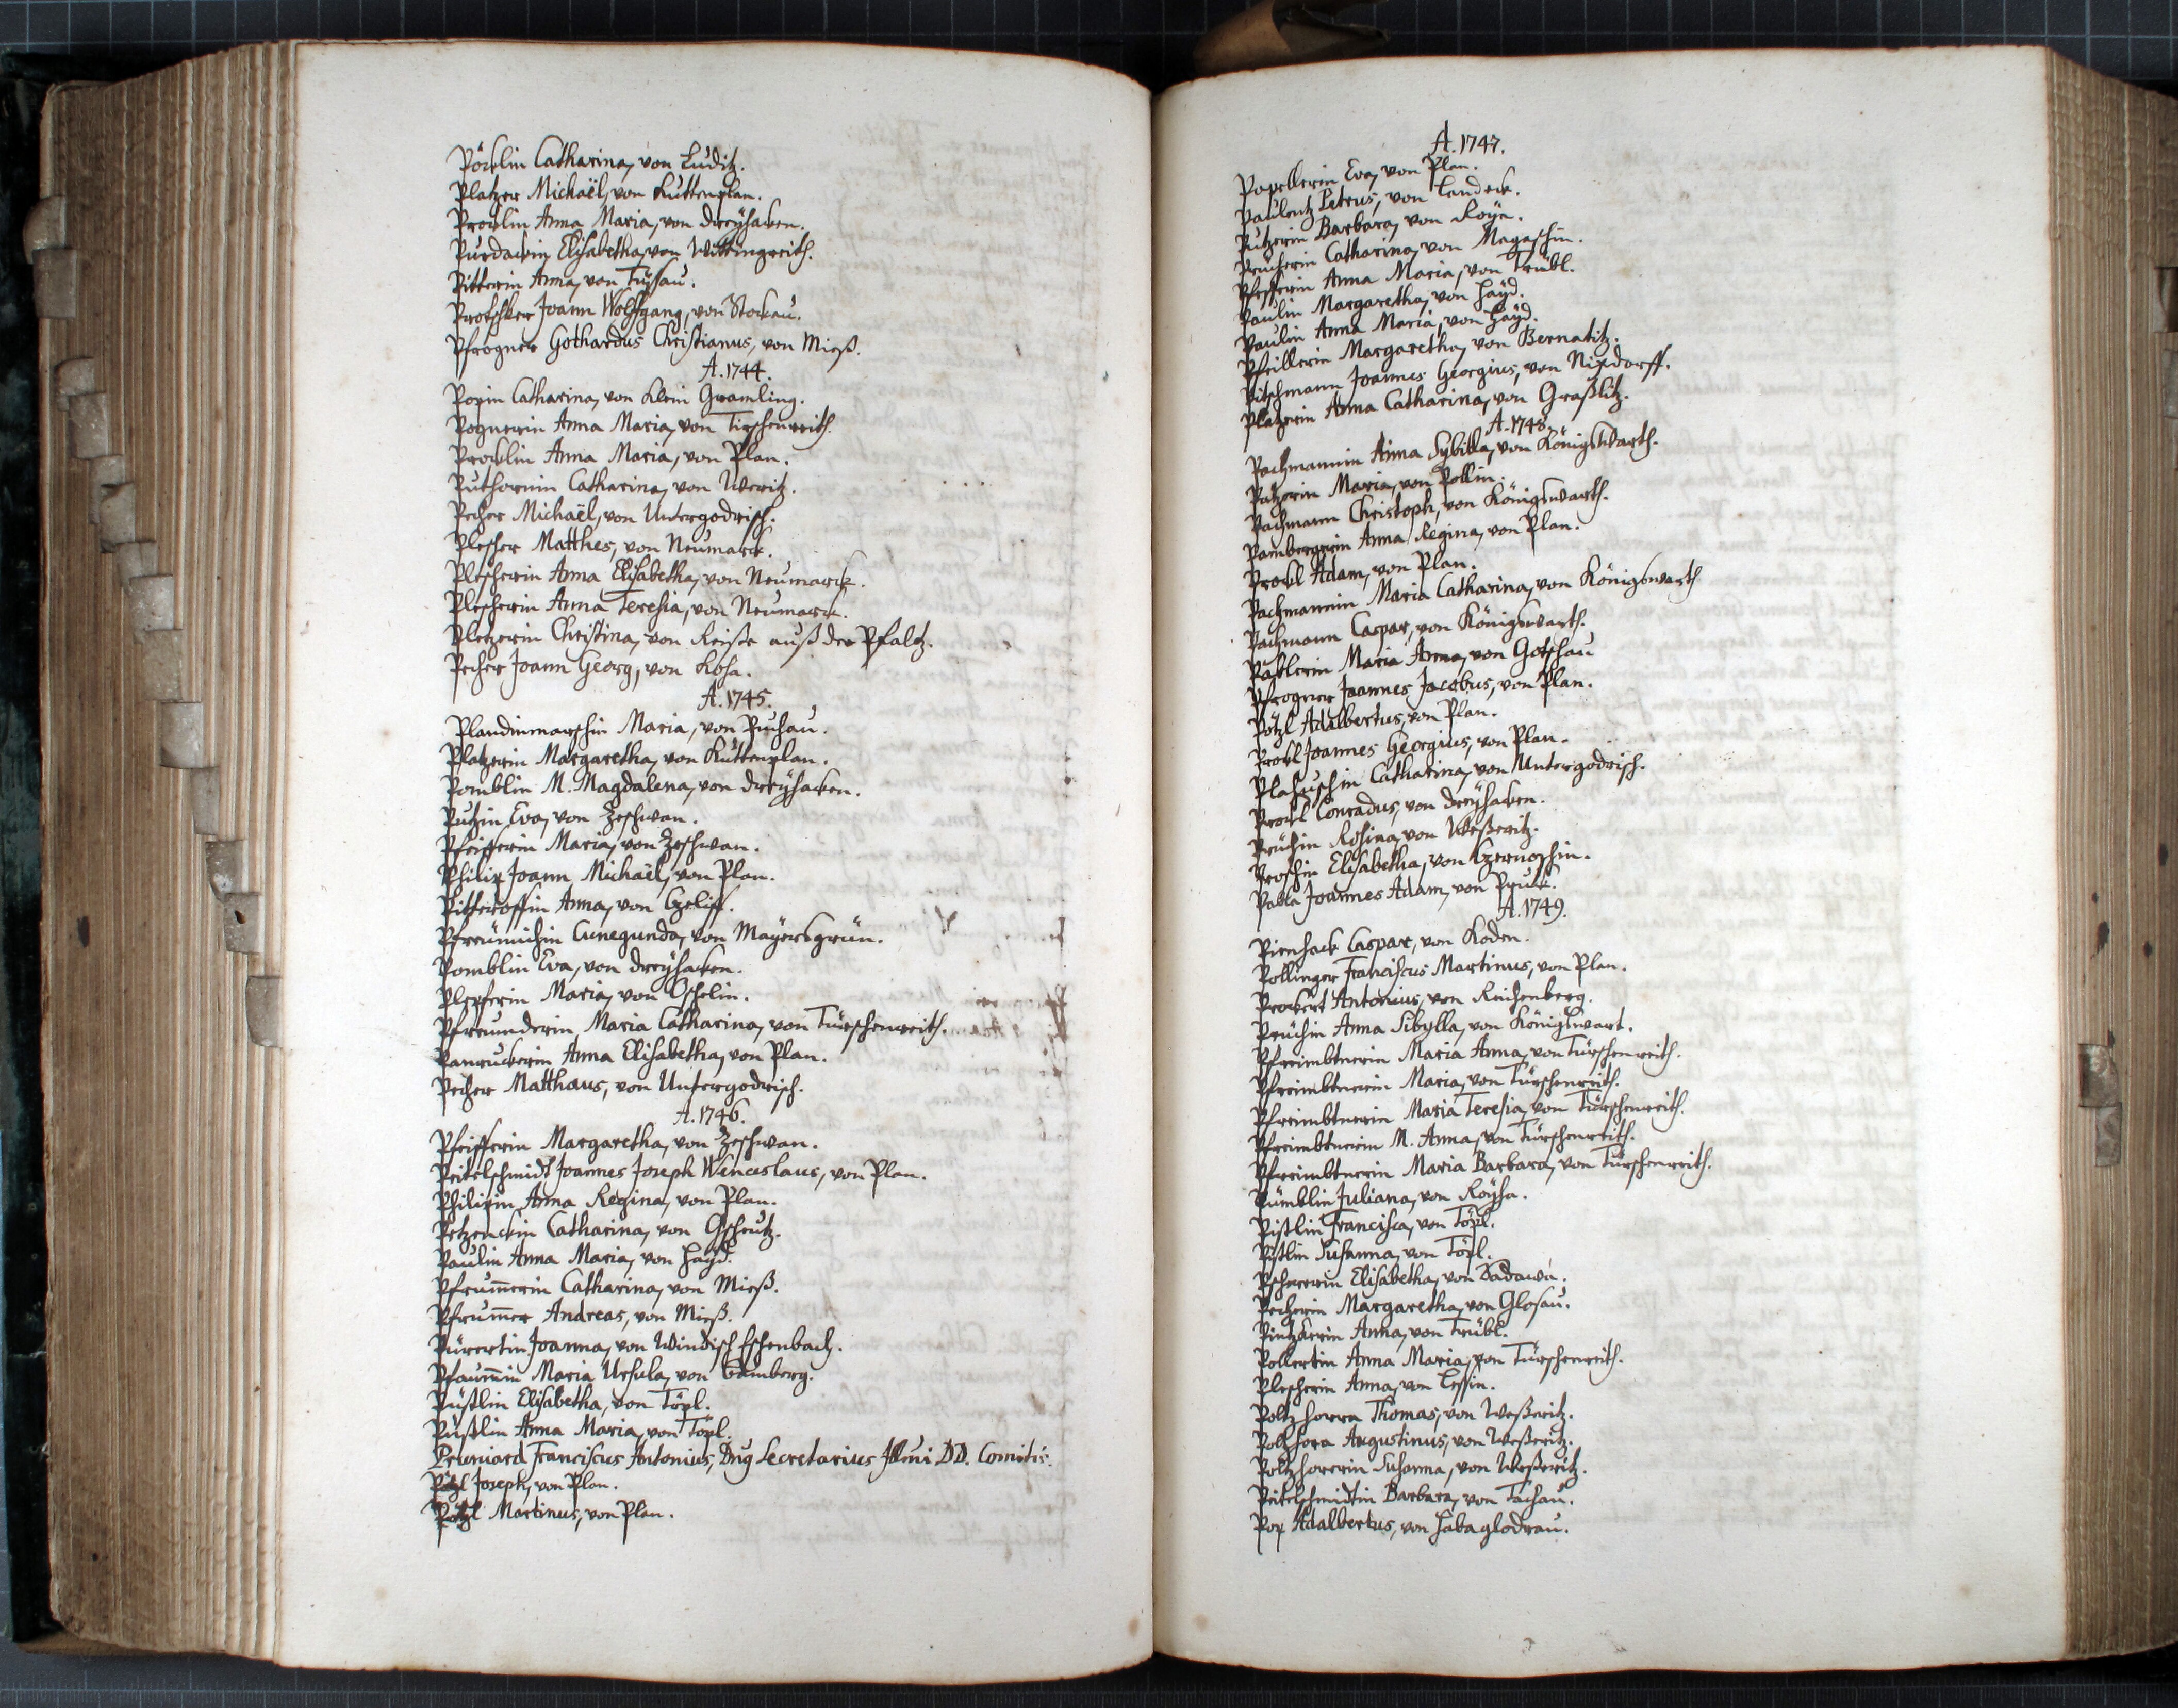 Pöcklin Catharina, von Luditz.
Platzer Michaël, von Kuttenplan.
Procklin Anna Maria, von Dreÿhacken.
Elisabetha, von Wittingreith.
Pitterin Anna, von
Protschker Joann Wolffgang, von Stockau.
Pfrogner Gothardus Christianus, von Mieß.
A. 1744.
Popin Catharina, von Klein Gramling.
Pognerin Anna Maria, von Tirschenreith.
Procklin Anna Maria, von Plan.
Catharina, von Weritz.
Pecher Michaël, von Untergodrisch.
Plescher Matthes, von Neumarck.
Plescherin Anna Elisabetha, von Neumarck.
Plescherin Anna Teresia, von Neumarck.
Pletzerin Christina, von auß der Pfaltz.
Pecher Joann Georg, von
A. 1745.
Maria, von Puchau.
Platzerin Margaretha, von Kuttenplan.
Pomblin M. Magdalena, von Dreÿhacken.
Putzin Eva, von Zeschwan.
Pfeifferin Maria, von Zeschwan.
Philip Joann Michaël, von Plan.
Anna, von
Cunegunda, von Maÿersgrün.
Pomblin Eva, von Dreÿhacken.
Maria, von Oschelin.
Pfreunderin Maria Catharina, von Türschenreith.
Panruckerin Anna Elisabetha, von Plan.
Pecher Matthæus, von Untergodrisch.
A. 1746.
Pfeifferin Margaretha, von Zeschwan.
Peitelschmidt Joannes Joseph Wenceslaus, von Plan.
Philipin Anna Regina, von Plan.
Catharina, von
Paulin Anna Maria, von Haÿd.
Pfrum̄erin Catharina, von Mieß.
Pfrum̄er Andreas, von Mieß.
Pürertin Joanna, von Windisch Eschenbach.
Pfaum̄in Maria Ursula, von Bamberg.
Püstlin Elisabetha, von Töpl.
Püstlin Anna Maria, von Töpl.
Pruniard Franciscus Antonius, Secretarius Illmi DD. Comitis.
Pötzl Joseph, von Plan.
Pötzl Martinus, von Plan.
A. 1747.
Eva, von Plan.
Petrus, von Landeck.
Putzerin Barbara, von
Catharina, von
Pfefferin Anna Maria, von Trübl.
Paulin Margaretha, von Haÿd.
Paulin Anna Maria, von Haÿd.
Pfeillerin Margaretha, von Bernatitz.
Pitschmann Joannes Georgius, von Nixdorff.
Platzerin Anna Catharina, von Graßlitz.
A. 1748.
Pachmannin Anna Sybilla, von Königswarth.
Maria, von Pollin.
Pachmann Christoph, von Königswarth.
Pambergerin Anna Regina, von Plan.
Prockl Adam, von Plan.
Pachmannin Maria Catharina, von Königswarth
Pachmann Caspar, von Königswarth.
Maria Anna, von Gotschau
Pfrogner Joannes Jacobus, von Plan.
Pötzl Adalbertus, von Plan.
Prockl Joannes Georgius, von Plan.
Catharina, von Untergodrisch.
Prockl Conradus, von Dreÿhacken.
Prüchin Rosina, von Weßeritz.
Elisabetha, von Czernoschin.
Pabla Joannes Adam, von
A. 1749.
Caspar, von
Pollinger Franciscus Martinus, von Plan.
Prockert Antonius, von Reichenberg.
Prüchin Anna Sibylla, von Königswart.
Pfreimbtnerin Maria Anna, von Türschenreith.
Pfreimbtnerin Maria, von Türschenreith.
Pfreimbtnerin Maria Teresia, von Türschenreith.
Pfreimbtnerin M. Anna, von Türschenreith.
Pfreimbtnerin Maria Barbara, von Türschenreith.
Pümblin Juliana, von
Pistlin Francisca, von Töpl.
Pistlin Susanna, von Töpl.
Elisabetha, von
Pecherin Margaretha, von Glosau.
Anna, von Trübl.
Pollertin Anna Maria, von Türschenreith.
Plescherin Anna, von
Thomas, von Weßeritz.
Augustinus, von Weßeritz.
Susanna, von Weßeritz.
Peitelschmidtin Barbara, von Tachau.
Pop Adalbertus, von